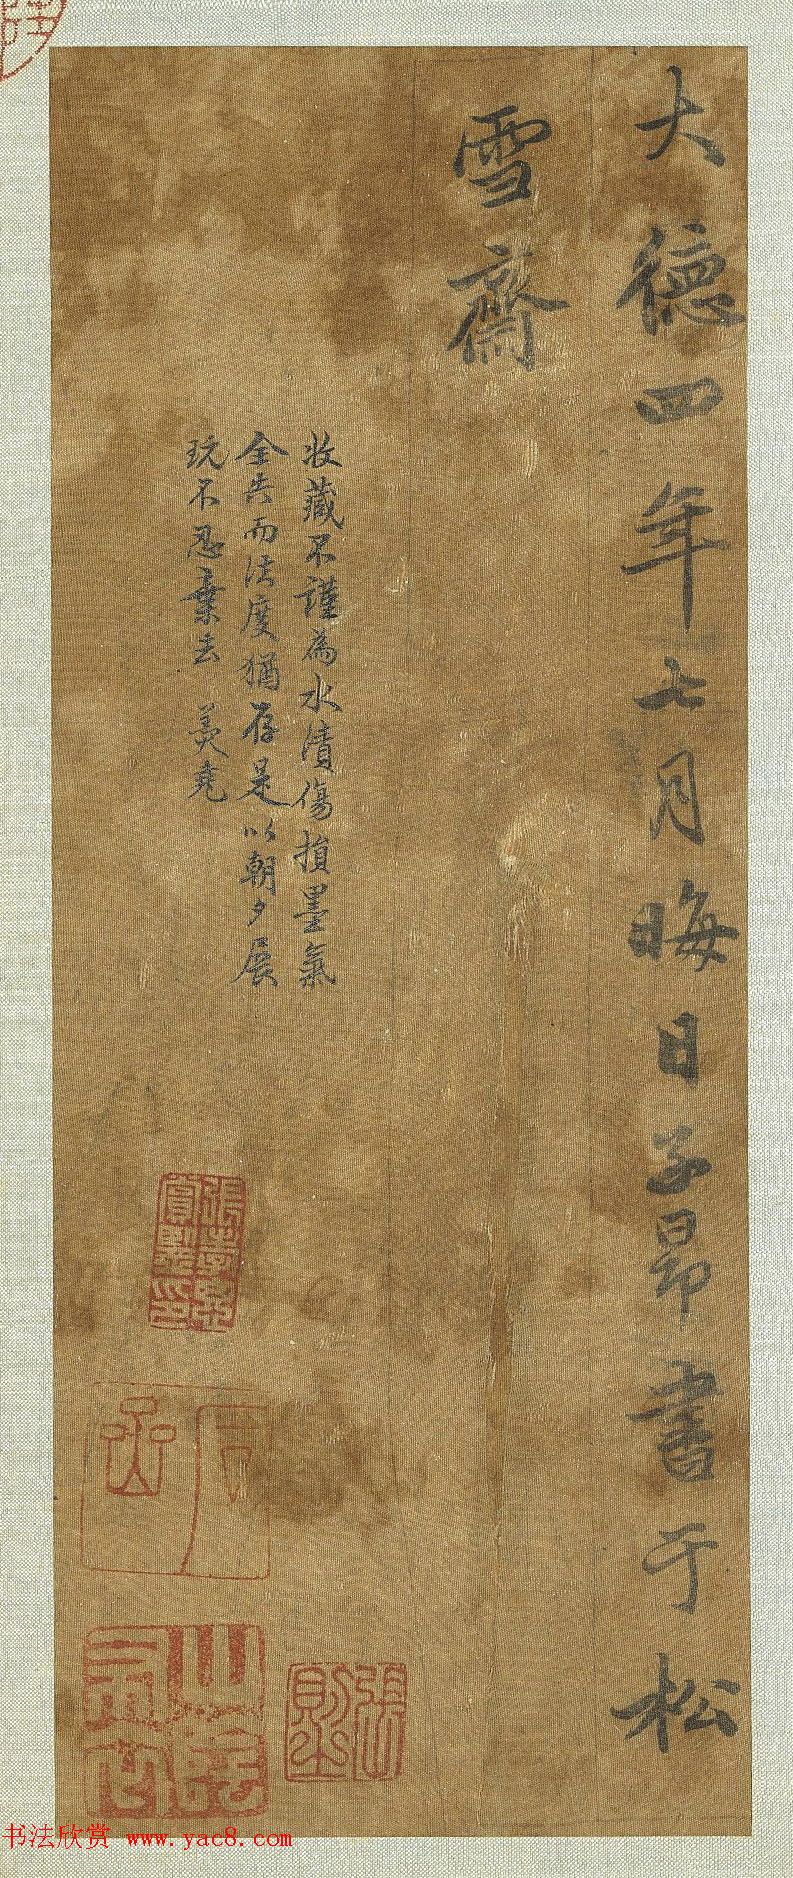 大德四年七月晦日子昂書于松
雪齋
收藏不謹為水漬傷損墨氣
全失而法度猶存是以朝夕展
玩不忍棄去 羙堯
张則之
书法欣赏 www.yac8.com